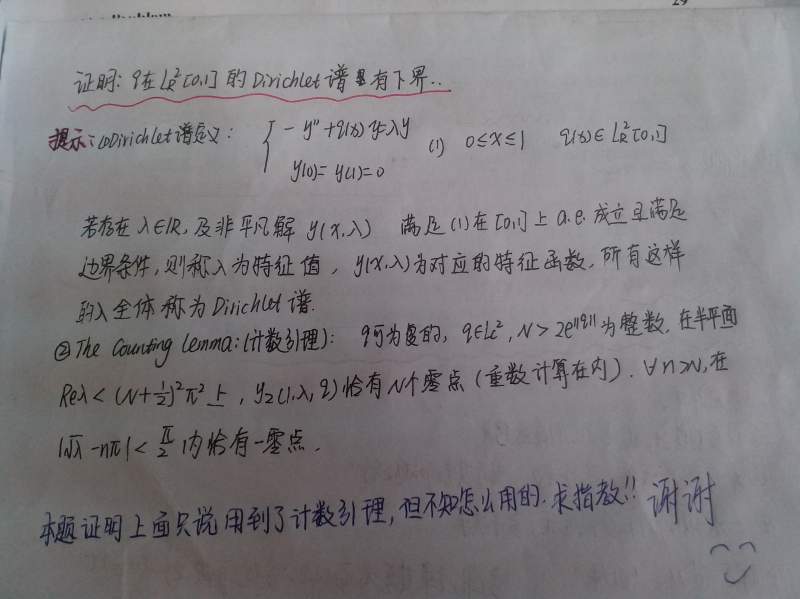 29
Problem
证明: q在 L²_R[0,1] 的 Dirichlet 谱有下界..
提示: ①Dirichlet 谱定义: { -y"+q(x)y=λy (1) 0≤x≤1 q(x)∈L²_R[0,1]
y(0)=y(1)=0
若存在 λ∈R, 及非平凡解 y(x,λ) 满足(1)在[0,1]上 a.e. 成立且满足
边界条件, 则称λ为特征值, y(x,λ)为对应的特征函数. 所有这样
的λ全体称为Dirichlet谱.
② The Counting Lemma: (计数引理): q可为复的, q∈L²_C, N > 2e^||q|| 为整数, 在半平面
Reλ < (N+1/2)²π² 上, y₂(1,λ,q) 恰有N个零点 (重数计算在内). ∀n>N, 在
|√λ - nπ| < π/2 内恰有一零点.
本题证明上面只说用到了计数引理, 但不知怎么用的. 求指教!! 谢谢